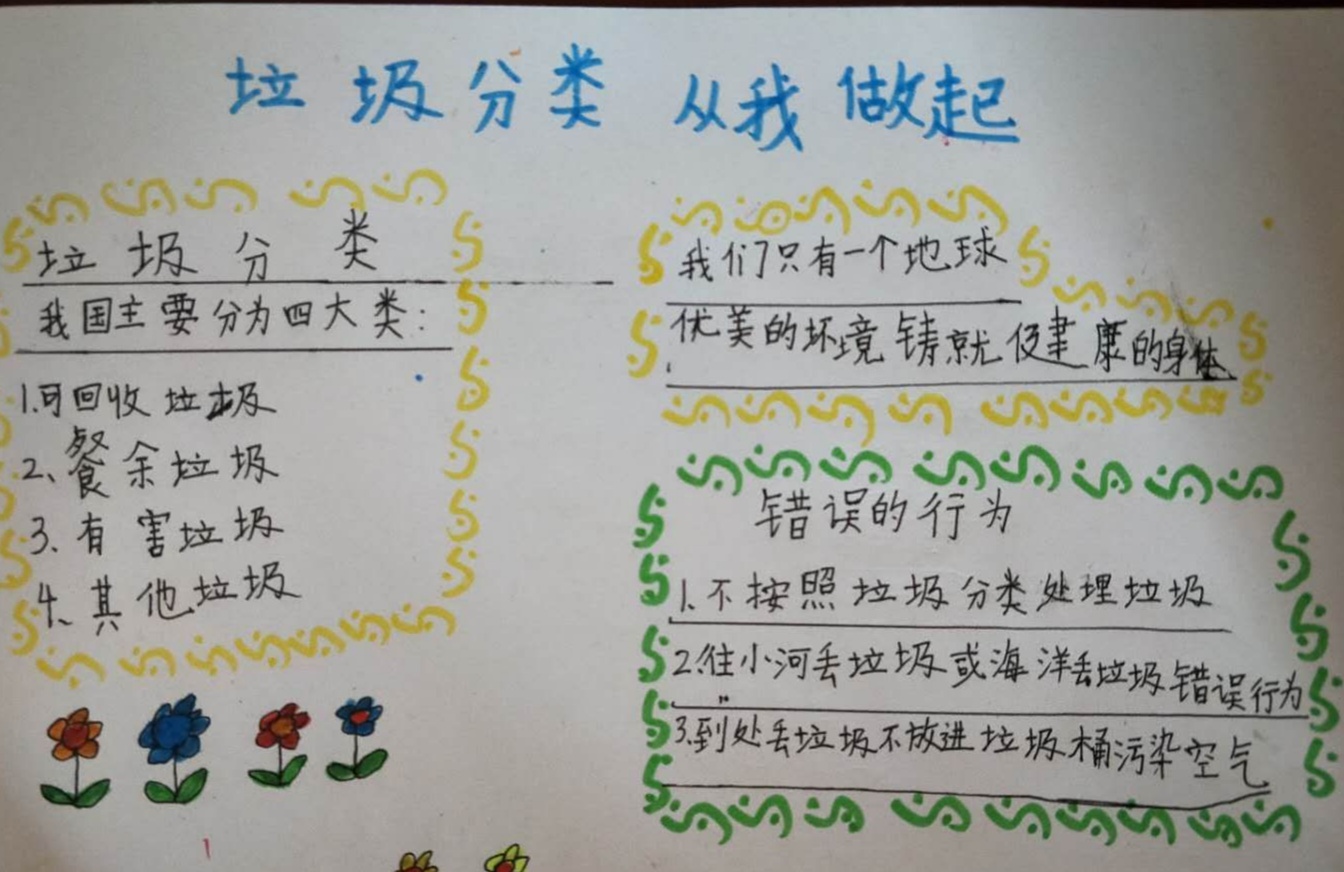 垃圾分类 从我做起
垃圾分类
我国主要分为四大类:
1.可回收垃圾
2、餐余垃圾
3、有害垃圾
4、其他垃圾
我们只有一个地球
优美的环境铸就健康的身体
错误的行为
1.不按照垃圾分类处理垃圾
2.往小河丢垃圾或海洋丢垃圾错误行为
3.到处丢垃圾不放进垃圾桶污染空气